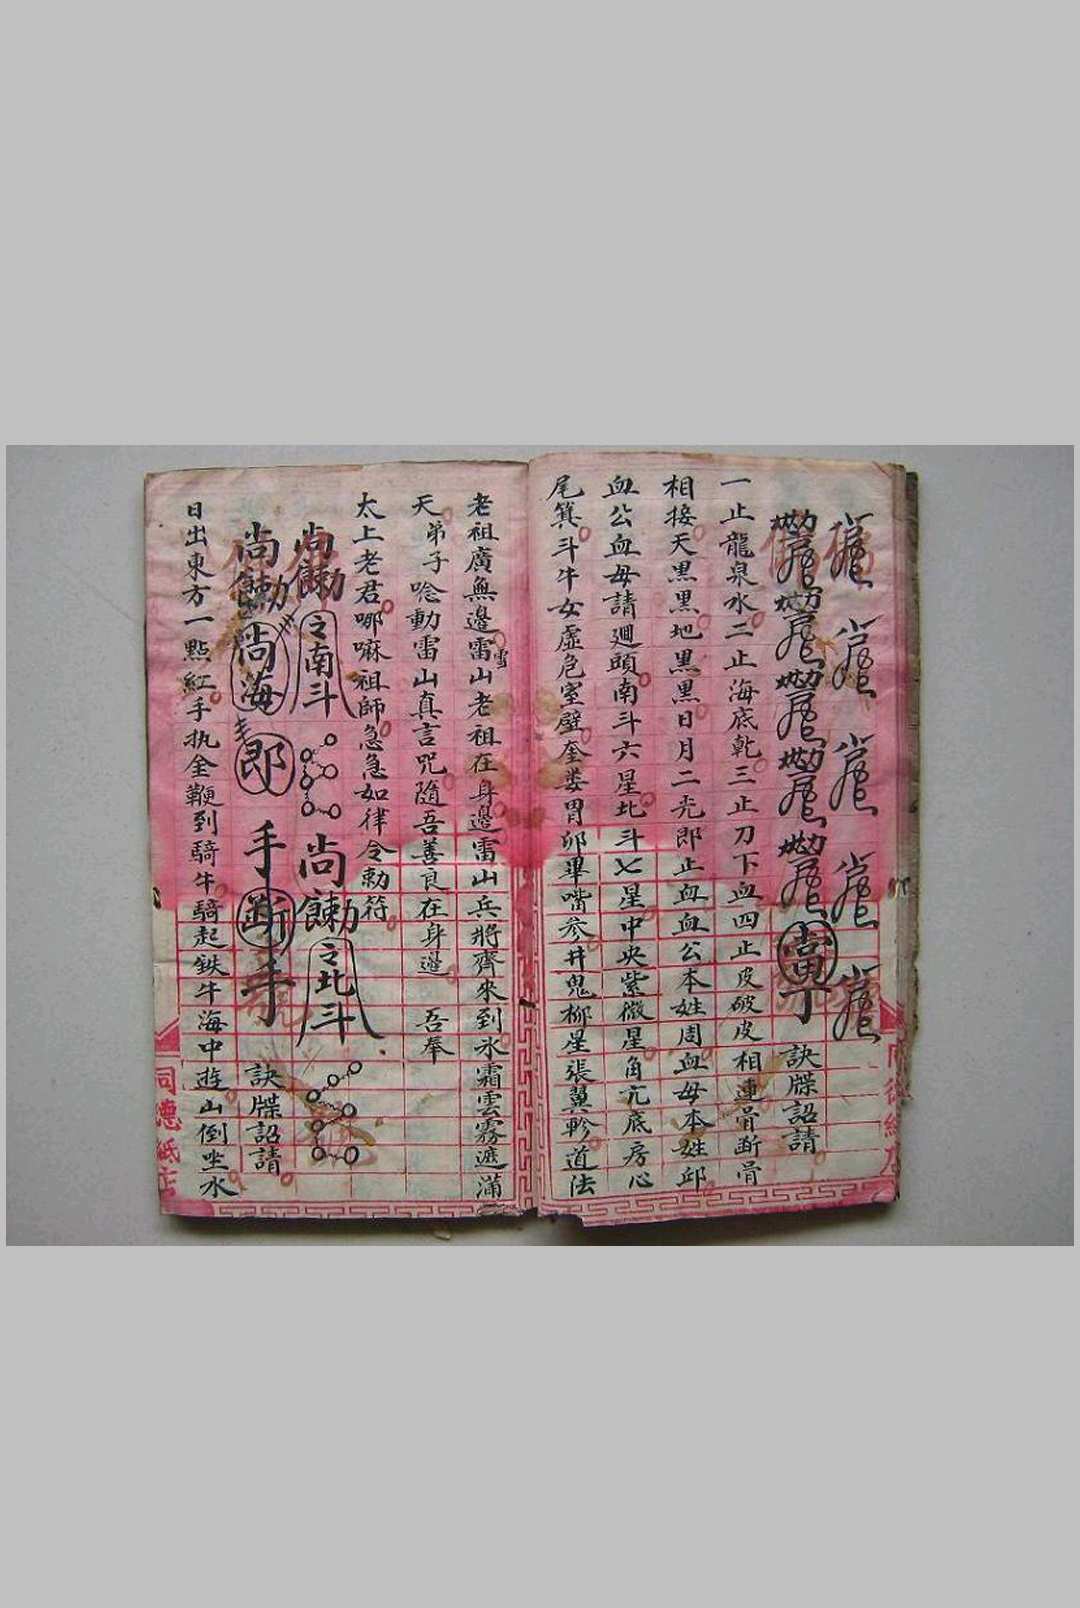 訣牒詔請
一止龍泉水二止海底乾三止刀下血四止皮破皮相連骨斷骨
相接天黑黑地黑黑日月二光郎止血血公本姓周血母本姓邱
血公血母請迴頭南斗六星北斗七星中央紫微星角亢底房心
尾箕斗牛女虛危室壁奎娄胃卯畢嘴參井鬼柳星張翼軫道法
老祖廣無邊雷山老祖在身邊雷山兵將齊來到氷霜雲霧遮滿
雪
天弟子唸動雷山真言咒隨吾善良在身邊 吾奉
太上老君哪嘛祖師急急如律令勅符
尚 之南斗 尚 之北斗
尚 尚海 郎 手斷手 訣牒詔請
日出東方一點紅手执金鞭到騎牛騎起鉄牛海中遊山倒坐水
同德紙庄